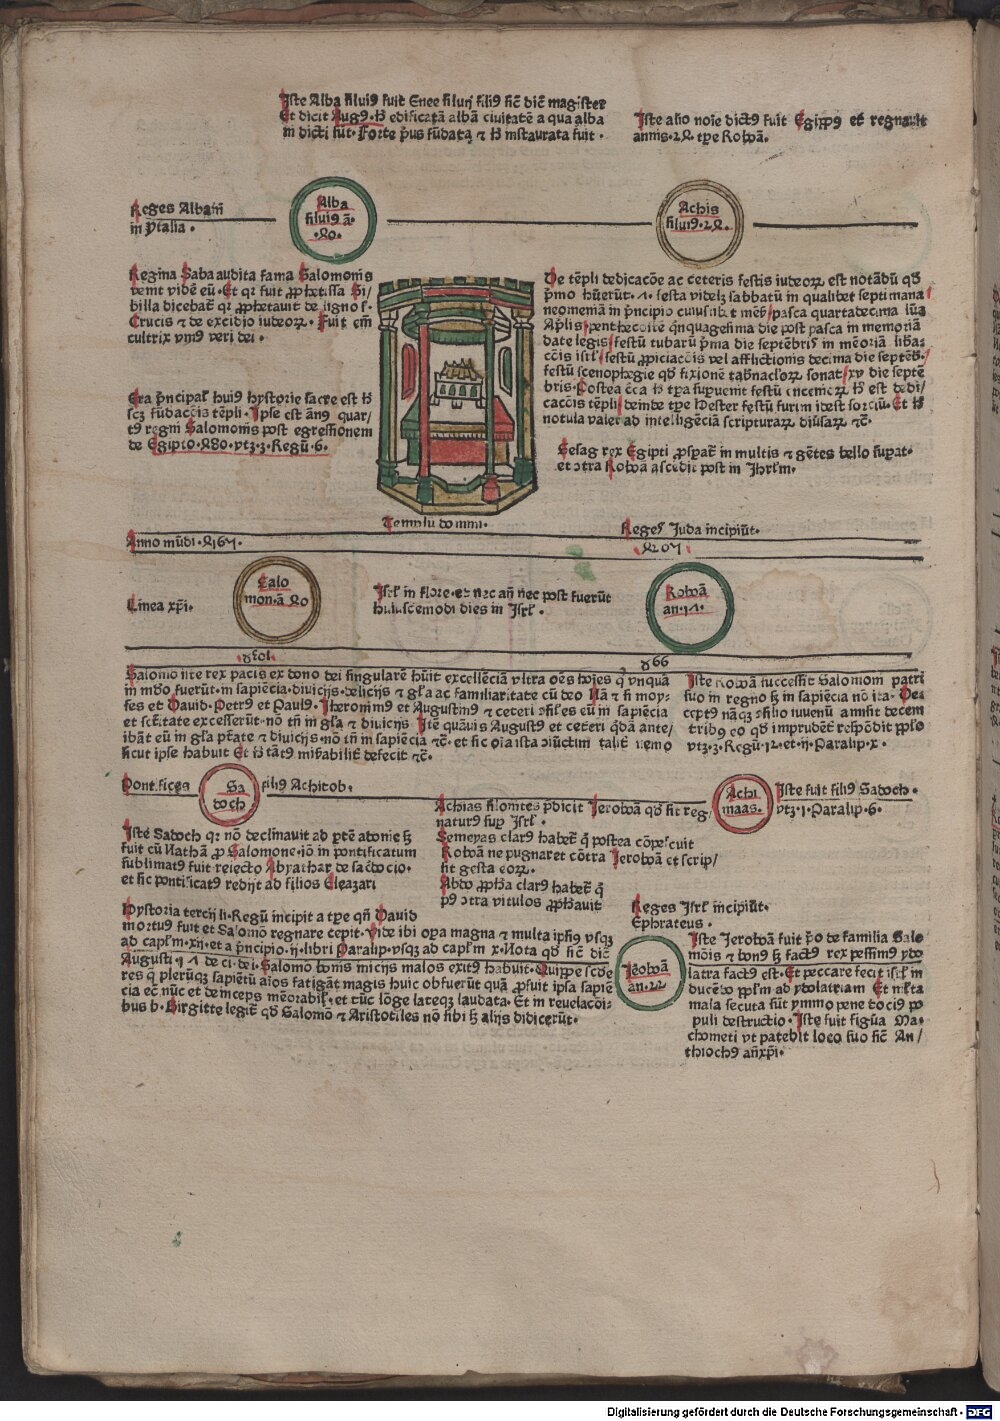 Iste Alba siluiꝰ fuit Enee siluij filiꝰ sic̄ dic̄ magister
Et dicit Augꝰ. hͦ edificatā albā ciuitatē a qua alba
ni dicti sūt. Forte pͥus fūdata ⁊ hͦ instaurata fuit.
Iste alio noīe dictꝰ fuit Egippꝰ et regnauit
annis. 28. tꝑe Roboā.
Reges Albani
in ytalia.
Alba
siluiꝰ ā.
.40.
Achis
siluiꝰ. 28.
Regina Saba audita fama Salomonis
venit vidē eū. Et qr fuit ꝓphetissa Si/
billa dicebat̄ qr ꝓphetauit de ligno s.
Crucis ⁊ de excidio iudeoꝝ. Fuit em̄
cultrix vniꝰ veri dei.
Era pͥncipal' huiꝰ hystorie sacre est hͦ
scꝫ fūdacōis tēpli. Ipse est ānꝰ quar/
tꝰ regni Salomonis post egressionem
de Egipto. 480. vtꝫ. 3. Regū. 6.
De tēpli dedicacōe ac ceteris festis iudeoꝝ est notādū qd
pͥmo hūerūt. 7. festa videlꝫ sabbatū in qualibet septimana
neomeniā in pͥncipio cuiuslibet mēs. pasca quartadecima lūa
Aplis penthecoste qͥnquagesima die post pasca in memoriā
date legis festū tubarū pͥma die septēbris in mēoriā libāa/
cōis isrl' festū ꝓpiciacōis vel afflictionis decima die septēb.
festū scenophegie qd fixionē tabnacl'oꝝ sonat xv die septē
bris. Postea cͥca hͦ tꝑa supuenit festū encenioꝝ hͦ est dedi/
cacōis tēpli deinde tꝑe Hester festū furim idest sorciū. Et hͦ
notula valet ad intelligēciā scripturaꝝ diūsaꝝ ⁊c̄.
Sesag rex Egipti ꝓsꝑat̄ in multis ⁊ gētes bello supat.
et ↄtra Roboā ascēdit post in Jhrl'm.
Templū domini.
Anno mūdi. 4167.
Reges Juda incipiūt.
4207
Linea xp̄i.
Salo
mon. ā 40
Isrl' in flore. et nec an̄ nec post fuerūt
huiuscemodi dies in Isrl'.
Roboā
an. 17.
Salomō iste rex pacis ex dono dei singularē hūit excellēciā vltra oēs hoīes qͥ vnquā
in mūdo fuerūt. in sapiēcia. diuicijs. delicijs ⁊ gl'a ac familiaritate cū deo Nā ⁊ si moy-
ses et Dauid. Petrꝰ et Paulꝰ. Iheronimꝰ et Augustinꝰ ⁊ ceteri
et sc̄titate excesserūt. nō tn̄ in gl'a ⁊ diuicijs. Itē quāuis Augustꝰ et ceteri qͥdā ante/
ibāt eū in gl'a ptāte ⁊ diuicijs. nō tn̄ in sapiēcia ⁊c̄. et sic oīa ista ↄiūctim talit̄ nemo
sicut ipse habuit Et hͦ tātꝰ mirabilit̄ defecit ⁊c̄.
966
Iste Roboā successit Salomoni patri
suo in regno sꝫ in sapiēcia nō ita. De/
ceptꝰ nāqꝫ ↄsilio iuuenū amisit decem
tribꝰ eo qd imprudēt̄ respōdit pplo
vtꝫ. 3. Regū. 12. et. ij. Paralip. x.
Pontifices
Sa
doch
filiꝰ Achitob.
Achi
maas.
Iste fuit filiꝰ Sadoch.
vtꝫ. 1. Paralip. 6.
Iste Sadoch qr nō declinauit ad ptē adonie sꝫ
fuit cū Nathā ꝓ Salomone. iō in pontificatum
sublimatꝰ fuit reiecto Abyathar de sac̄docio.
et sic pontificatꝰ redijt ad filios Eleazari
Achias silonites pͥdicit Jeroboā qd sit reg/
naturꝰ suꝑ Isrl'.
Semeyas clarꝰ habet̄ qͥ postea cōpescuit
Roboā ne pugnaret cōtra Jeroboā et scrip/
sit gesta eoꝝ.
Abdo ꝓpha clarꝰ habet̄ qͥ
pꝰ ↄtra vitulos ꝓphauit
Hystoria tercij li. Regū incipit a tꝑe qn̄ Dauid
mortuꝰ fuit et Salomō regnare cepit. Vide ibi oꝑa magna ⁊ multa ipsiꝰ vsqꝫ
ad capl'm. xij. et a pͥncipio. ij. libri Paralip. vsqꝫ ad capl'm x. Nota qd sic̄ dic̄
Augusti. 17 de ci. dei. Salomō bonis inicijs malos exitꝰ habuit. Quippe scōe
res qͥ plerūqꝫ sapiētū aīos fatigāt magis huic obfuerūt quā ꝓfuit ipsa sapiē
cia ec̄ nūc et deinceps mēorabil'. et tūc lōge lateqꝫ laudata. Et in reuelacōi-
bus b. Birgitte legit̄ qd Salomō ⁊ Aristotiles nō sibi sꝫ alijs didicerūt.
Reges Isrl' incipiūt.
Ephrateus.
Jēoboā
an. 22
Iste Jeroboā fuit pͥo de familia Salo
mōis ⁊ bonꝰ sꝫ factꝰ rex pessimꝰ ydo
latra factꝰ est. Et peccare fecit isrl' in
ducēdo ppl'm ad ydolatriam Et
mala secuta sūt ymmo pene tociꝰ po
puli destructio. Iste fuit figūa Ma-
chometi vt patebit loco suo sic̄ An/
thiochꝰ an̄xp̄i.
Digitalisierung gefördert durch die Deutsche Forschungsgemeinschaft - DFG